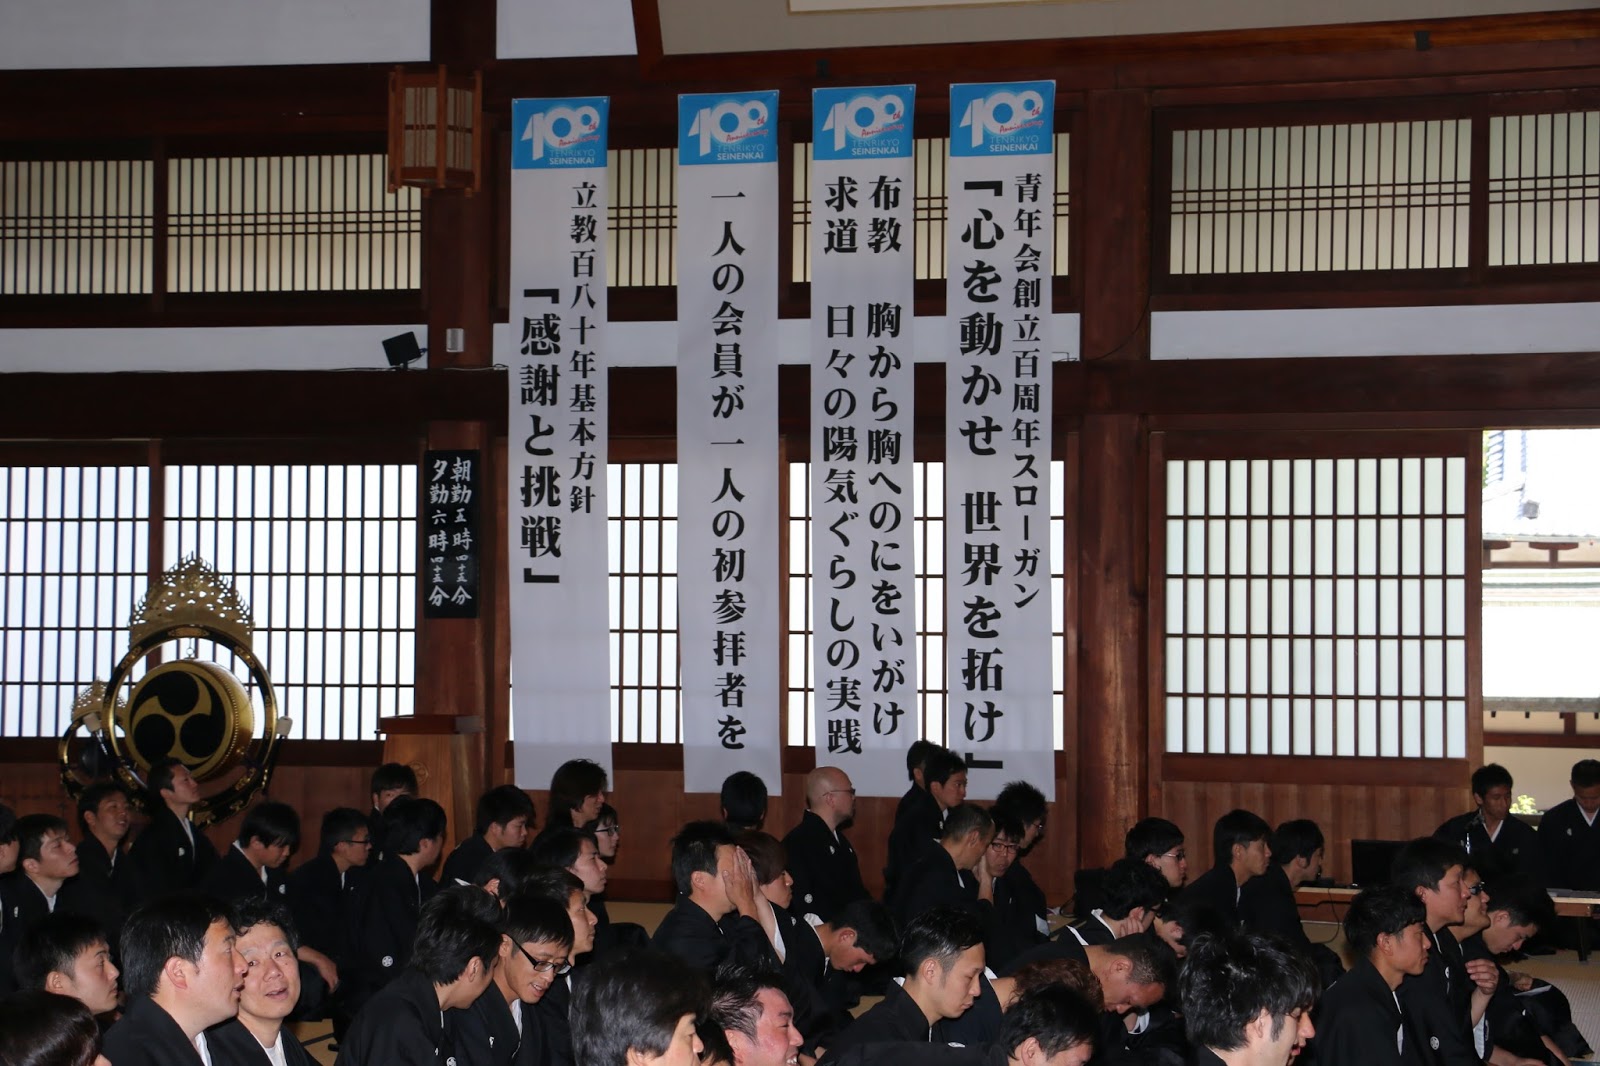 100th
Anniversary
TENRIKYO
SEINENKAI
青年会創立百周年スローガン
「心を動かせ 世界を拓け」
100th
Anniversary
TENRIKYO
SEINENKAI
布教 胸から胸へのにをいがけ
求道 日々の陽気ぐらしの実践
100th
Anniversary
TENRIKYO
SEINENKAI
一人の会員が一人の初参拝者を
100th
Anniversary
TENRIKYO
SEINENKAI
立教百八十年基本方針
「感謝と挑戦」
朝勤五時四十五分
夕勤六時四十五分